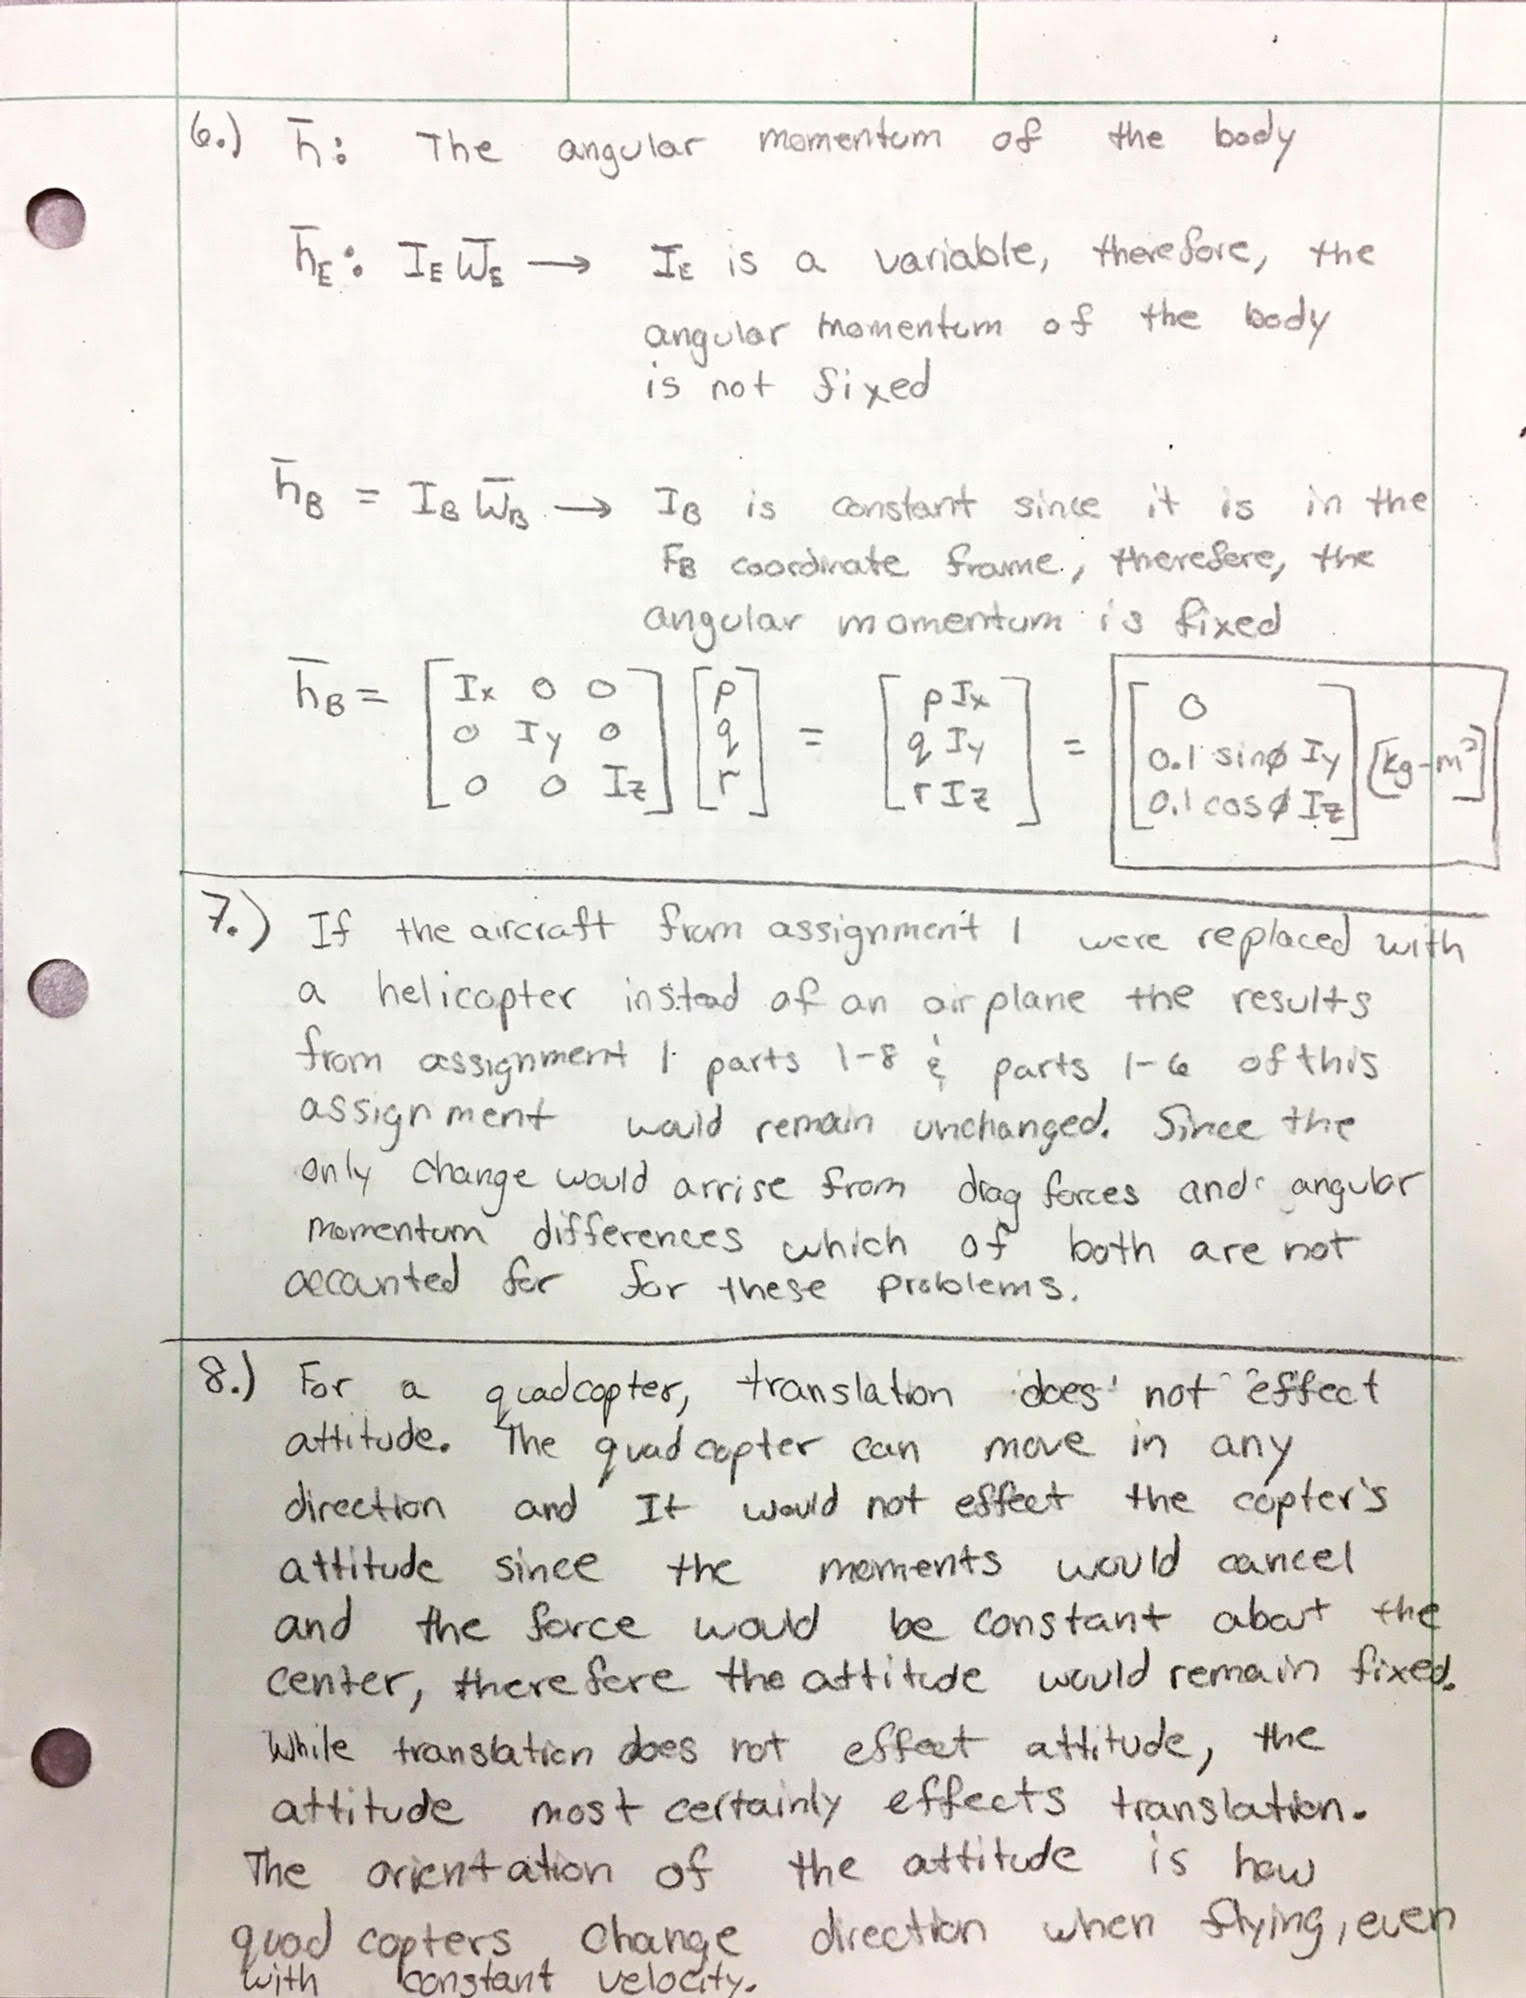 6.) h̄: The angular momentum of the body
h̄_E: I_E ω̄_E → I_E is a variable, therefore, the
angular momentum of the body
is not fixed
h̄_B = I_B ω̄_B → I_B is constant since it is in the
F_B coordinate frame, therefore, the
angular momentum is fixed
h̄_B = [Ix 0 0; 0 Iy 0; 0 0 Iz] [p; q; r] = [p Ix; q Iy; r Iz] = [0; 0.1 sinϕ Iy; 0.1 cosϕ Iz] [kg-m²]
7.) If the aircraft from assignment 1 were replaced with
a helicopter instead of an airplane the results
from assignment 1 parts 1-8 & parts 1-6 of this
assignment would remain unchanged. Since the
only change would arrise from drag forces and angular
momentum differences which of both are not
accounted for for these problems.
8.) For a quadcopter, translation does not effect
attitude. The quadcopter can move in any
direction and It would not effect the copter's
attitude since the moments would cancel
and the force would be constant about the
center, therefore the attitude would remain fixed.
While translation does not effect attitude, the
attitude most certainly effects translation.
The orientation of the attitude is how
quad copters change direction when flying, even
with constant velocity.